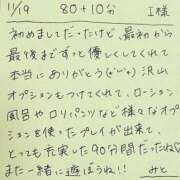 11/19 80+10分 I様
初めましてだったけど、最初から
最後までずっと優しくしてくれて
本当にありがとう(๑>◡<๑)沢山
オプションもつけてくれて、ローション
風呂やロリパンツなど様々なオプ
ションを使ったプレイが出来て、
とっても充実した90分だったね
また一緒に遊ぼうね!! みと